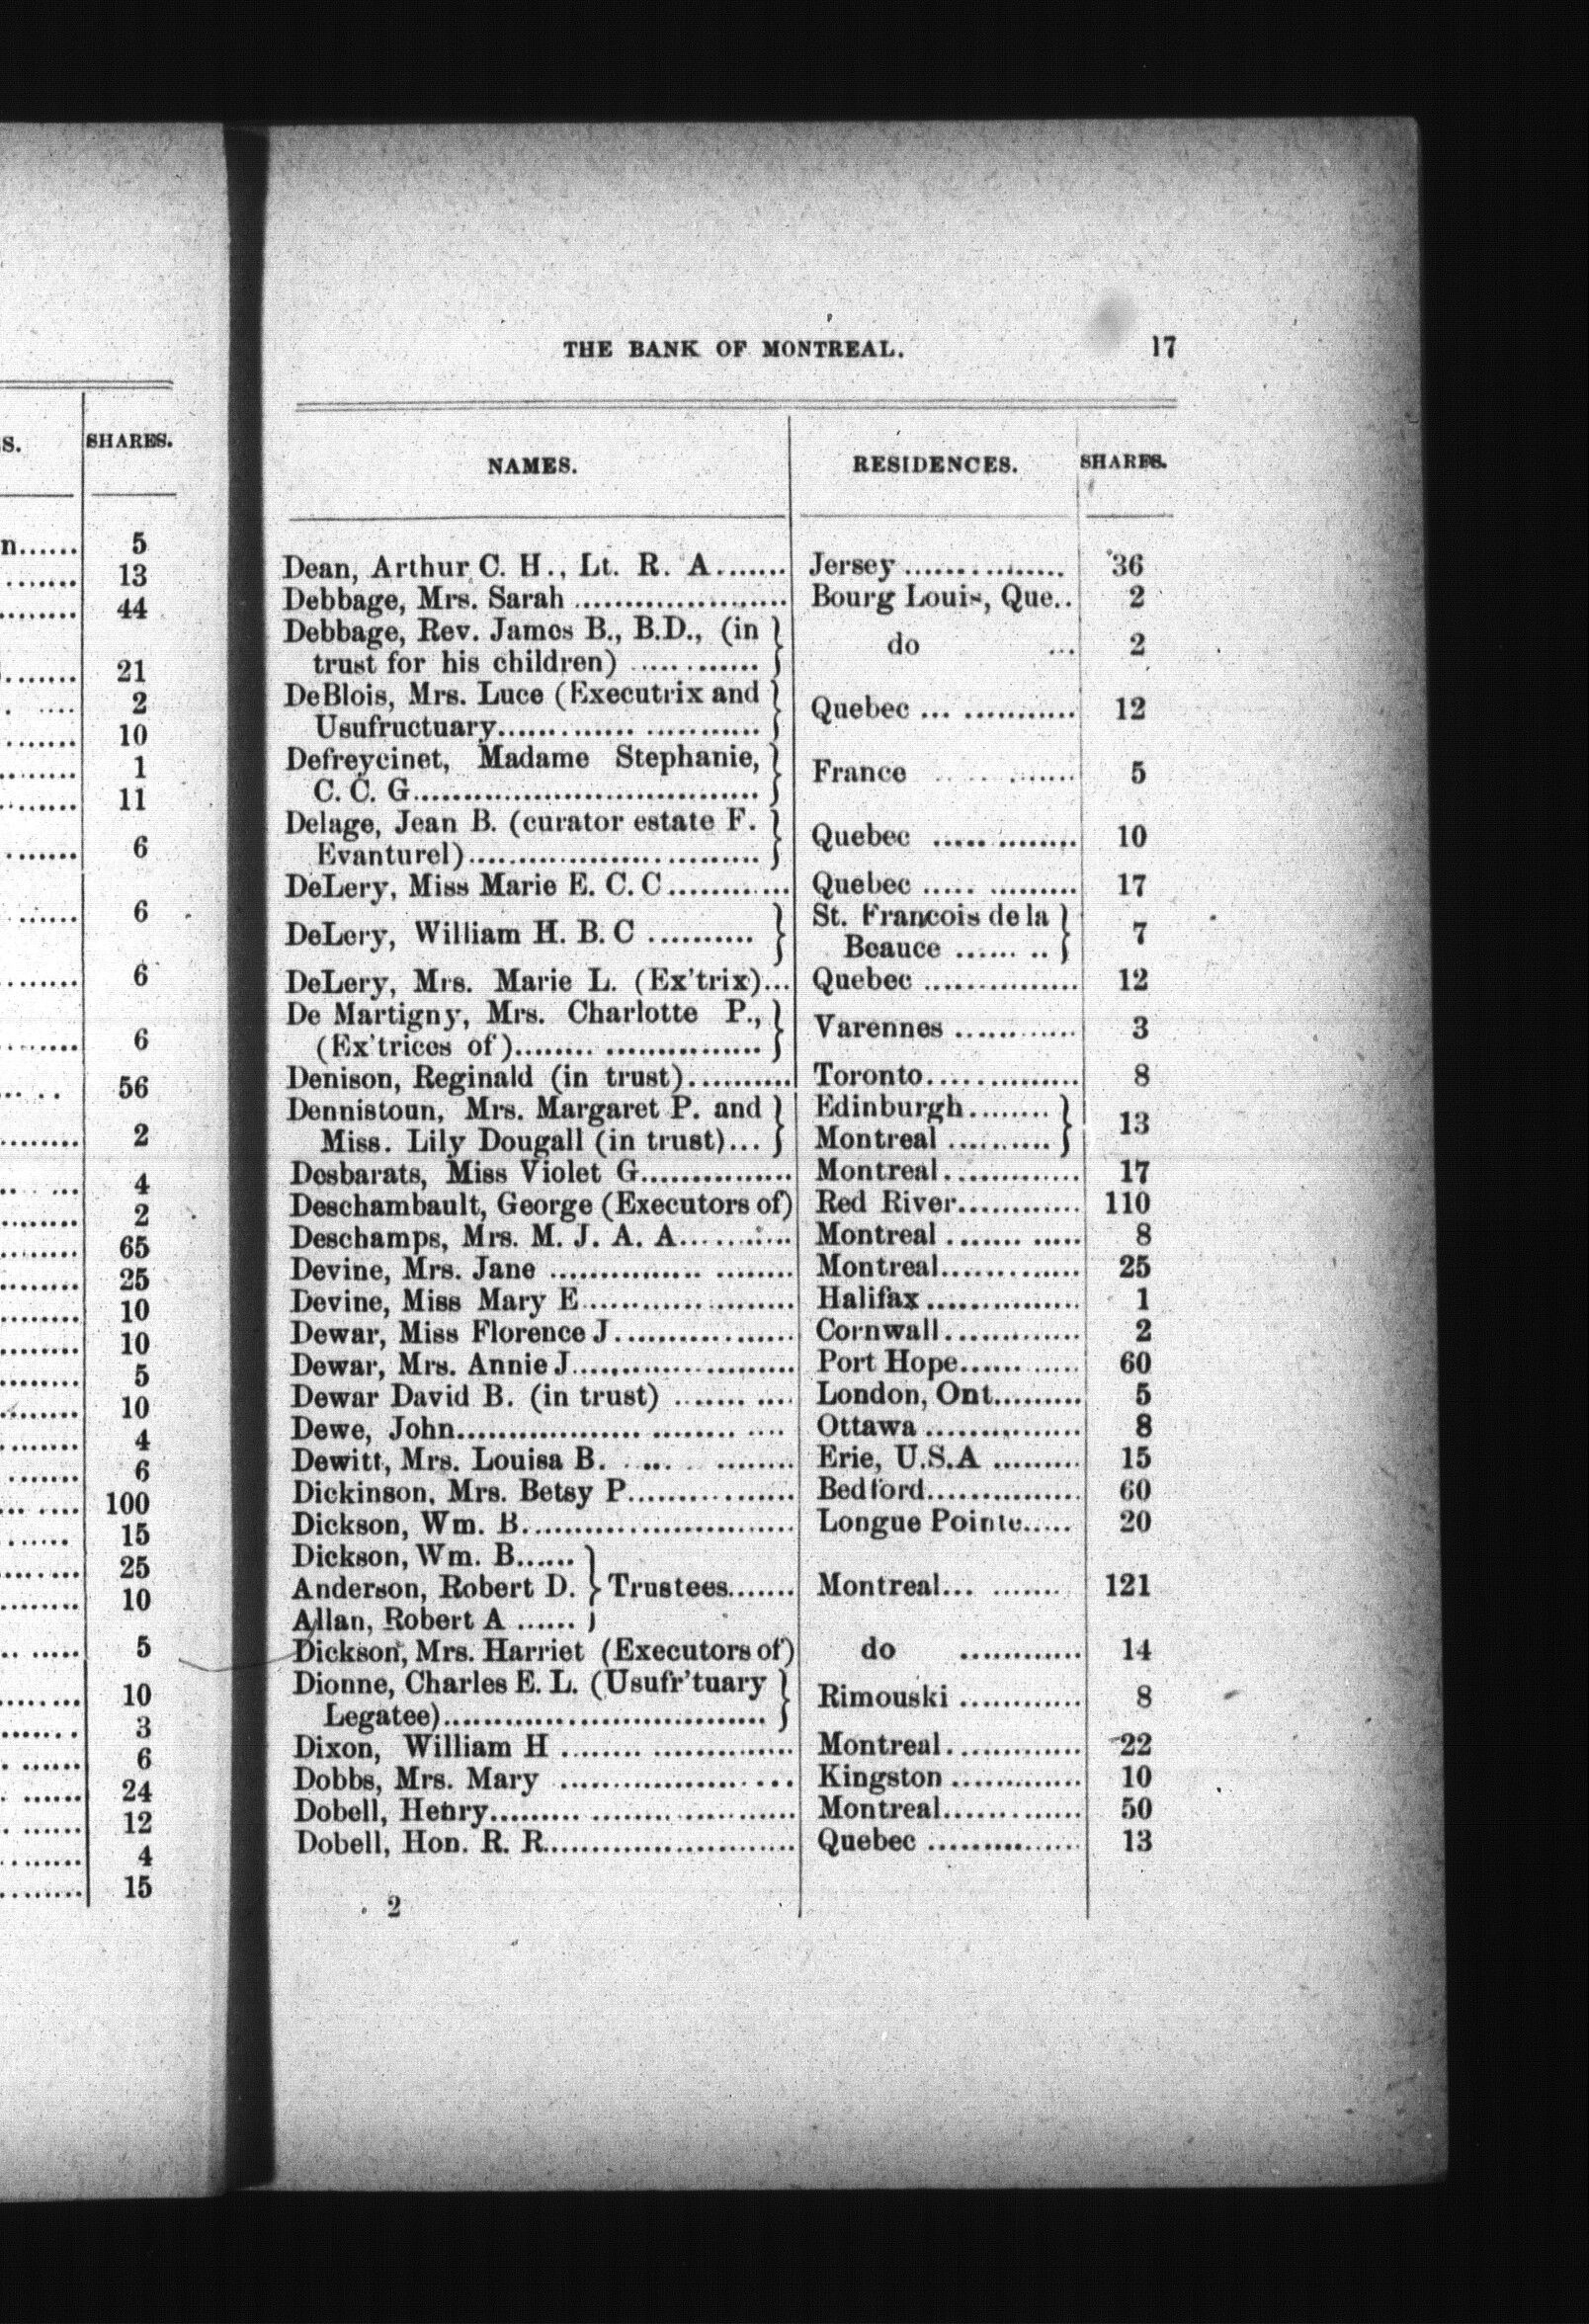 S. SHARES.
n...... 5
....... 13
........ 44
....... 21
. .... 2
....... 10
........ 1
........ 11
....... 6
...... 6
....... 6
........ 6
... . . 56
........ 2
.. . ... 4
........ 2
........ 65
........ 25
........ 10
........ 10
........ 5
........ 10
....... 4
....... 6
... .... 100
...... 15
........ 25
........ 10
.. ..... 5
....... 10
........ 3
. ...... 6
. ...... 24
. ...... 12
........ 4
........ 15
THE BANK OF MONTREAL. 17
NAMES. RESIDENCES. SHARES.
Dean, Arthur C. H., Lt. R. A....... Jersey ................ 36
Debbage, Mrs. Sarah ..................... Bourg Louis, Que.. 2
Debbage, Rev. James B., B.D., (in
trust for his children) ............. } do ... 2
DeBlois, Mrs. Luce (Executrix and
Usufructuary.......................... } Quebec ... ........... 12
Defreycinet, Madame Stephanie,
C. C. G.................................. } France .............. 5
Delage, Jean B. (curator estate F.
Evanturel)............................. } Quebec ..... ........ 10
DeLery, Miss Marie E. C. C............ Quebec ..... ......... 17
DeLery, William H. B. C .......... } St. Francois de la
Beauce ...... .. } 7
DeLery, Mrs. Marie L. (Ex'trix)... Quebec ............... 12
De Martigny, Mrs. Charlotte P.,
(Ex'trices of)........ ............... } Varennes ............ 3
Denison, Reginald (in trust).......... Toronto............... 8
Dennistoun, Mrs. Margaret P. and } Edinburgh........ }
Miss. Lily Dougall (in trust)... } Montreal .......... } 13
Desbarats, Miss Violet G............... Montreal............. 17
Deschambault, George (Executors of) Red River............ 110
Deschamps, Mrs. M. J. A. A........... Montreal ....... ..... 8
Devine, Mrs. Jane ............... ........ Montreal............. 25
Devine, Miss Mary E..................... Halifax ............... 1
Dewar, Miss Florence J.................. Cornwall............. 2
Dewar, Mrs. Annie J...................... Port Hope............ 60
Dewar David B. (in trust) ....... .... London, Ont......... 5
Dewe, John.................. ........ .... Ottawa ............... 8
Dewitt, Mrs. Louisa B. . ... . ........ Erie, U.S.A ......... 15
Dickinson, Mrs. Betsy P................. Bedford............... 60
Dickson, Wm. B........................... Longue Pointe..... 20
Dickson, Wm. B......
Anderson, Robert D. } Trustees....... Montreal... ....... 121
Allan, Robert A ......
Dickson, Mrs. Harriet (Executors of) do ............ 14
Dionne, Charles E. L. (Usufr'tuary
Legatee)................................ } Rimouski ............ 8
Dixon, William H ........ .............. Montreal............. 22
Dobbs, Mrs. Mary .................. .... Kingston ............. 10
Dobell, Henry......... .................... Montreal.............. 50
Dobell, Hon. R. R......................... Quebec ............... 13
2